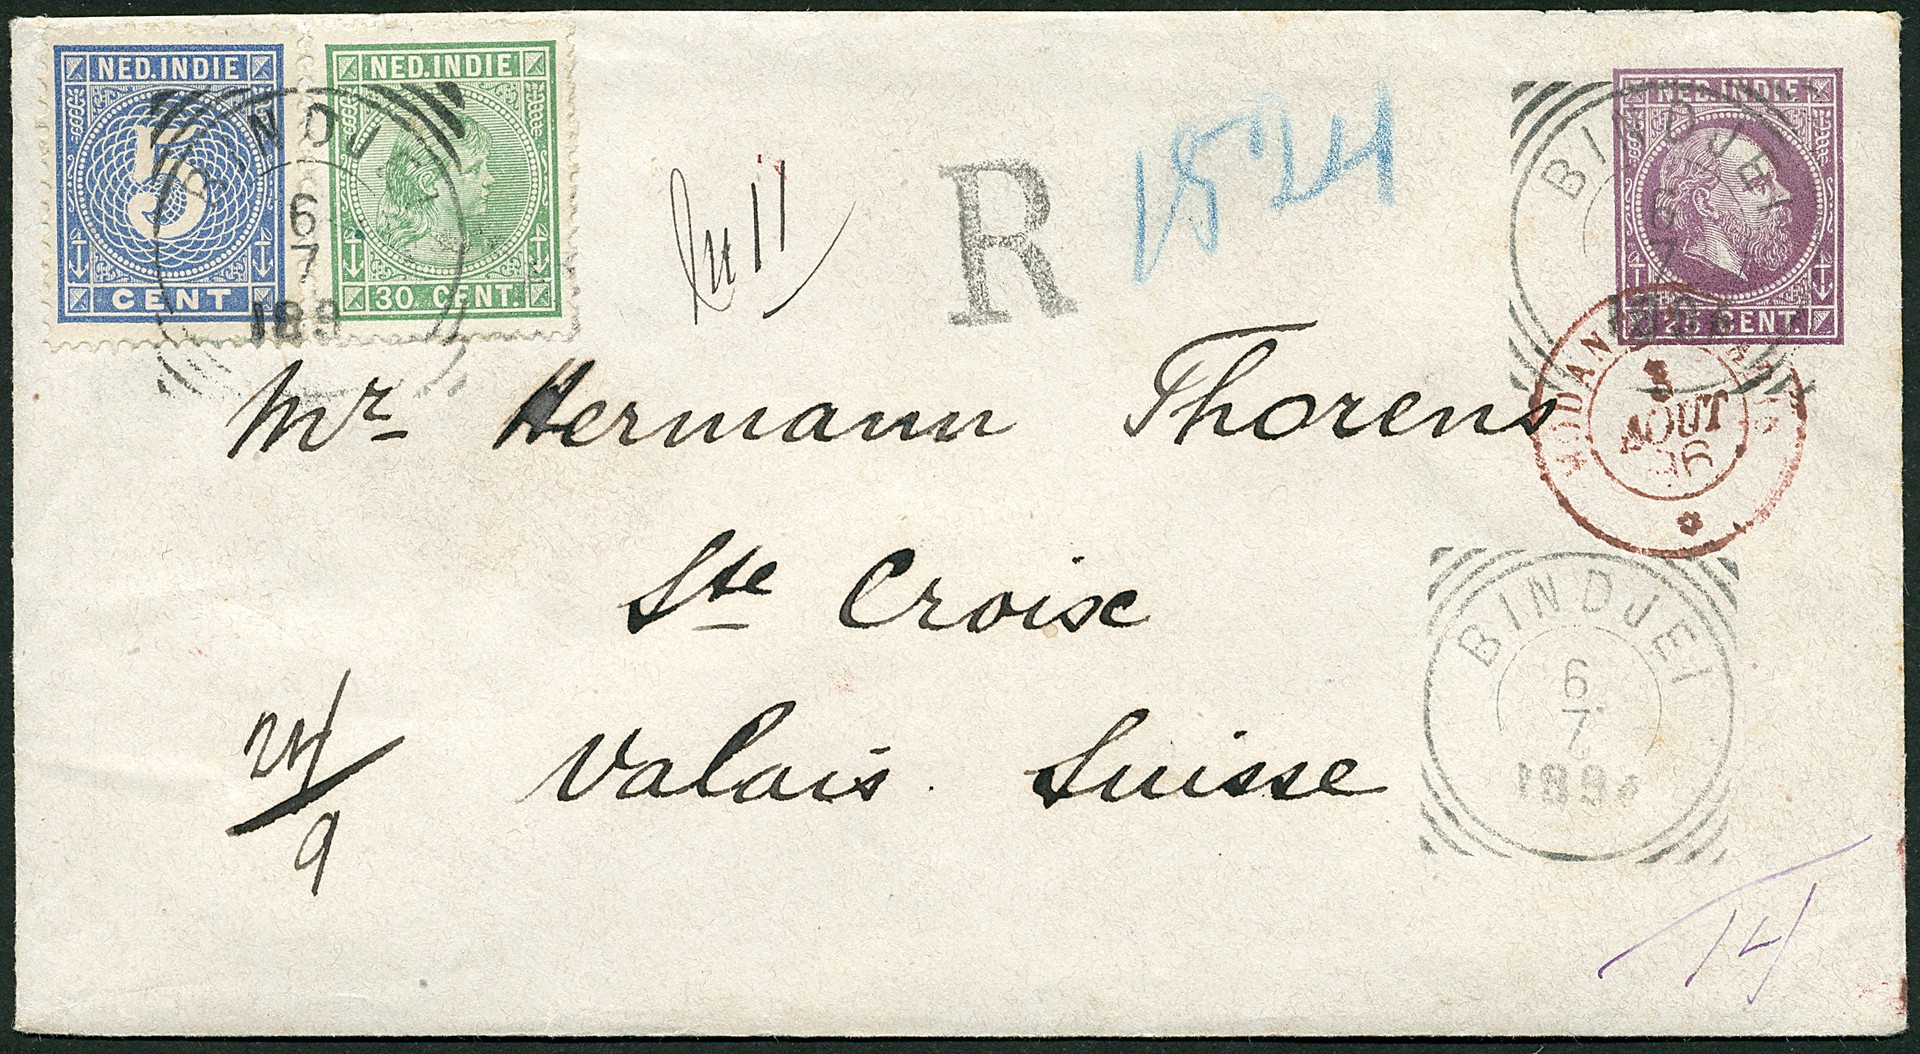 NED.INDIE
5
CENT
NED.INDIE
30 CENT.
BINDJEI
6
7
189
No 11
R
1524
NED.INDIE
25 CENT.
BINDJEI
6
7
189
MODANE
3
AOUT
96
Mr Hermann Thorens
Ste Croix
Valais. Suisse
24/9
BINDJEI
6
7
189
14